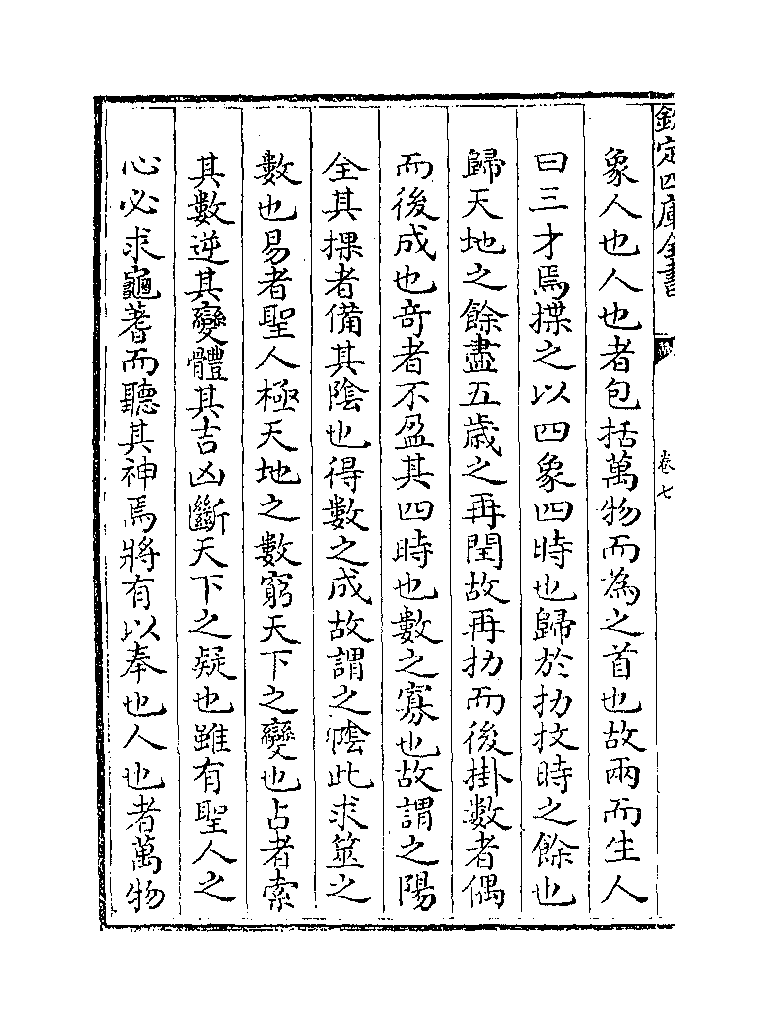 欽定四庫全書
卷七
象人也人也者包括萬物而為之首也故兩而生人
曰三才焉揲之以四象四時也歸於扐扐時之餘也
歸天地之餘盡五歲之再閏故再扐而後掛數者偶
而後成也奇者不盈其四時也數之寡也故謂之陽
全其揲者備其陰也得數之成故謂之陰此求筮之
數也易者聖人極天地之數窮天下之變也占者索
其數逆其變體其吉凶斷天下之疑也雖有聖人之
心必求龜蓍而聽其神焉將有以奉也人也者萬物